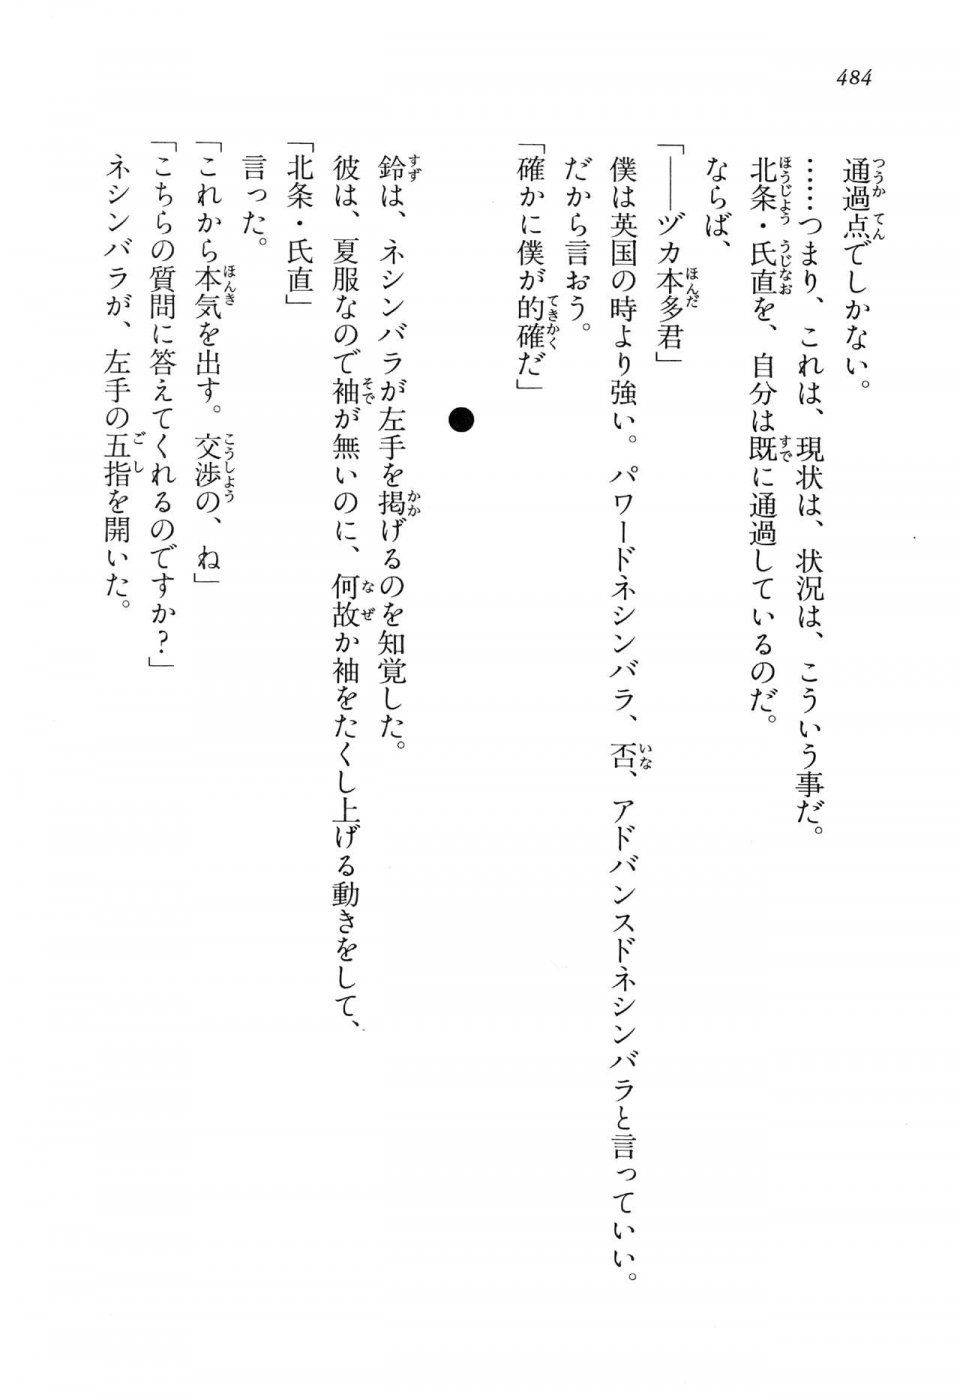 484
通過点でしかない。
……つまり、これは、現状は、状況は、こういう事だ。
北条・氏直を、自分は既に通過しているのだ。
ならば、
「――ヅカ本多君」
僕は英国の時より強い。パワードネシンバラ、否、アドバンスドネシンバラと言っていい。
だから言おう。
「確かに僕が的確だ」
●
鈴は、ネシンバラが左手を掲げるのを知覚した。
彼は、夏服なので袖が無いのに、何故か袖をたくし上げる動きをして、
「北条・氏直」
言った。
「これから本気を出す。交渉の、ね」
「こちらの質問に答えてくれるのですか？」
ネシンバラが、左手の五指を開いた。